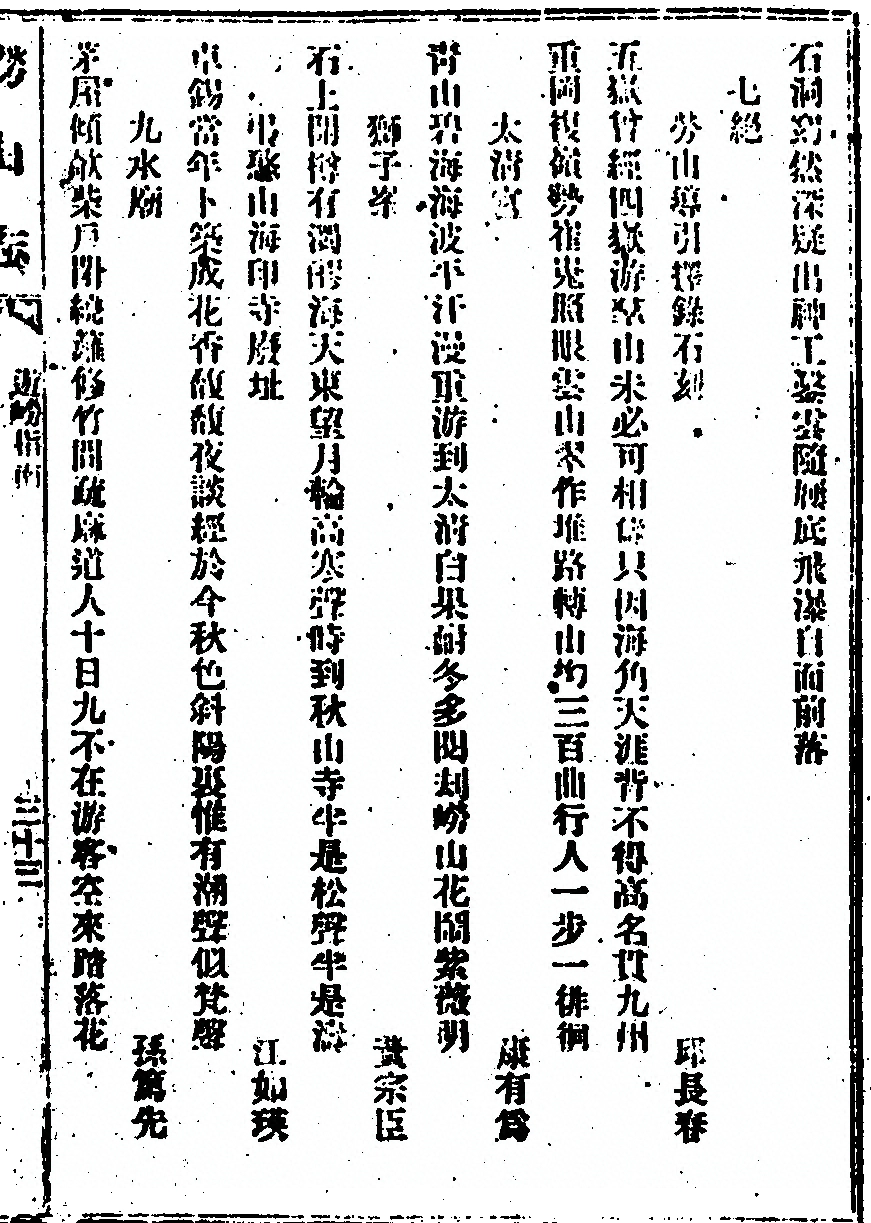 石洞窈然深疑出神工鑿雲隨層底飛瀑自面前落
七絕
勞山導引擇錄石刻
邱長春
五嶽曾經四嶽游羣山未必可相儔只因海角天涯背不得高名貫九州
重岡複嶺勢崔嵬照眼雲山翠作堆路轉山均三百曲行人一步一徘徊
太清宮
康有爲
青山碧海海波平汗漫重游到太清白果耐冬多閱劫嶗山花鬧紫薇明
獅子峯
黃宗臣
石上開樽有濁醪海天東望月輪高寒聲時到秋山寺半是松聲半是濤
弔憨山海印寺廢址
江如瑛
卓錫當年卜築成花香馥馥夜談經於今秋色斜陽裏惟有潮聲似梵聲
九水廟
孫篤先
茅屋傾欹柴戶閉繞籬修竹間疏麻道人十日九不在游客空來踏落花
勞山志
遊嶗指南
三十三